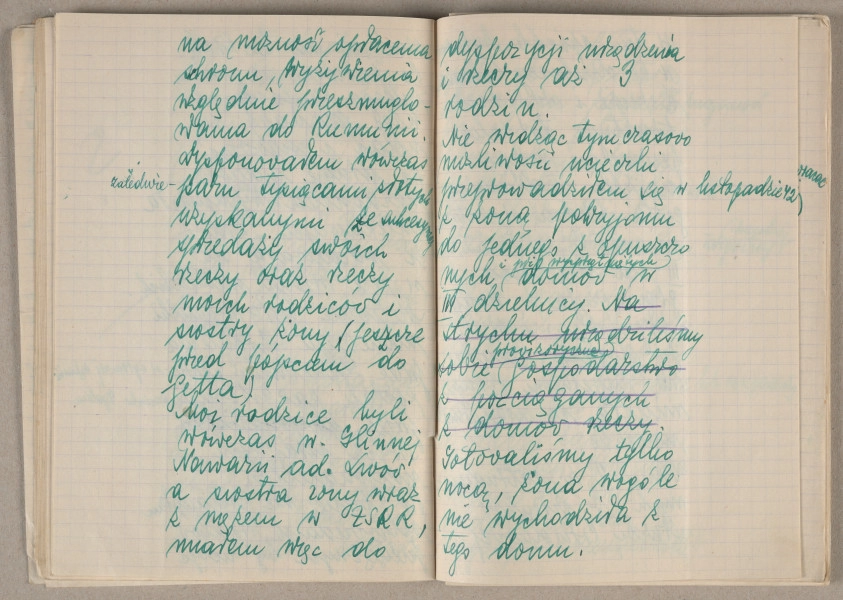 na możność opłacenia
schronu, wyżywienia
względnie przeszmuglo-
wania do Rumunii.
Dysponowałem wówczas
zaledwie paru tysiącami złotych
uzyskanymi ze sukcesywnej
sprzedaży swoich
rzeczy oraz rzeczy
moich rodziców i
siostry żony (jeszcze
przed pójściem do
Getta)
Moi rodzice byli
wówczas w Glinnej
Nawarii ad. Lwów
a siostra żony wraz
z mężem w ZSRR,
miałem więc do
dyspozycji urządzenia
i rzeczy aż 3
rodzin.
Nie widząc tymczasowo
możliwości ucieczki
przeprowadziłem się w listopadzie 42)
z żoną potryjomu
do jednego z opuszczo
nych i domów w
III dzielnicy. Na
strychu urządziliśmy
sobie prowizoryczne gospodarstwo
z pościąganych
z domów rzeczy.
Gotowaliśmy tylko
nocą, żona wogóle
nie wychodziła z
tego domu.